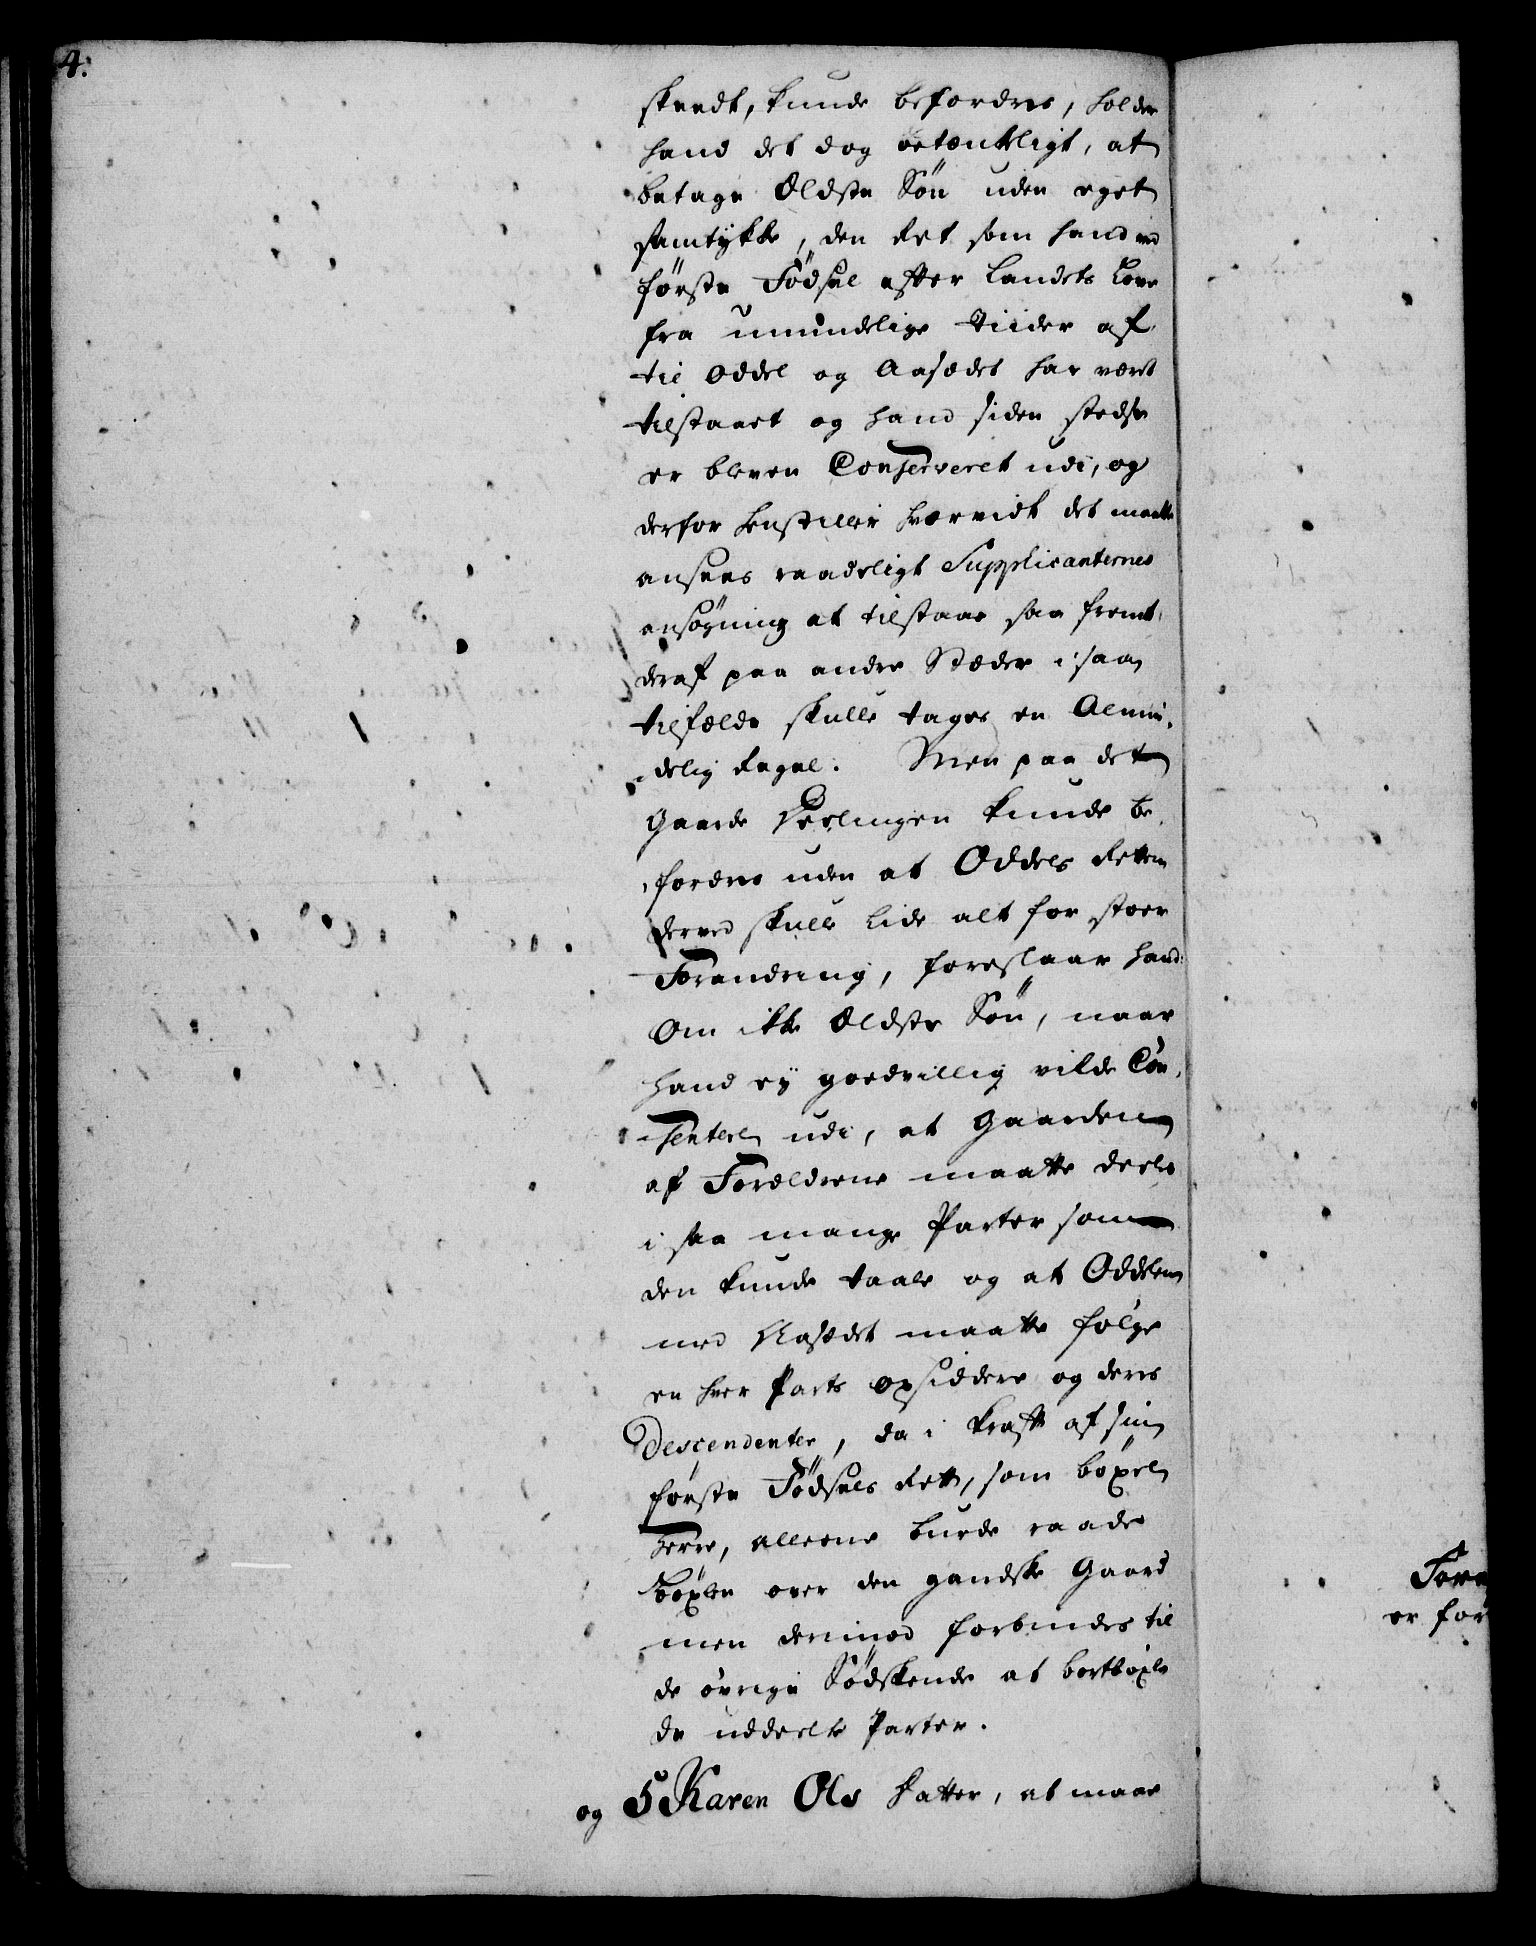 4.
skeedt, kunde befordres, holder
hand det dog betænkeligt, at
betage Ældste Søn uden eget
samtÿkke, den Ret som hand ved
første Fødsel efter Landets Lov
fra umindelige Tiider af
til Oddel og Aasædet har vært
tilstaaet og hand siden stedse
er bleven Conserveret udi, og
derfor henstiller hvorvidt det maatte
ansees raadeligt Supplicanternes
ansøgning at tilstaae saa fremt
deraf paa andre Stæder i saa
tilfælde skulle tages en Almin-
delig Regel. Men paa det
Gaarde Deelingen kunde be-
fordres uden at Oddels Retten
derved skulle lide alt for stoer
Forandring, foreslaar hand:
Om ikke Ældste Søn, naar
hand eÿ goedvillig vilde Con-
sentere udi, at Gaarden
af Forældrene maatte deeles
i saa mange Parter som
den kunde taale og at Oddelen
med Aasædet maatte følge
en hver Parts opsiddere og deres
Descendenter, da i kraft af sin
første Fødsels Rett, som böxel
Herre, alleene burde raade
böxlen over den gandske Gaard
men derimod forbindes til
de øvrige Södskende at bortböxle
de uddeelte Parter.
og 5 Karen Ols Datter, at maae
er for